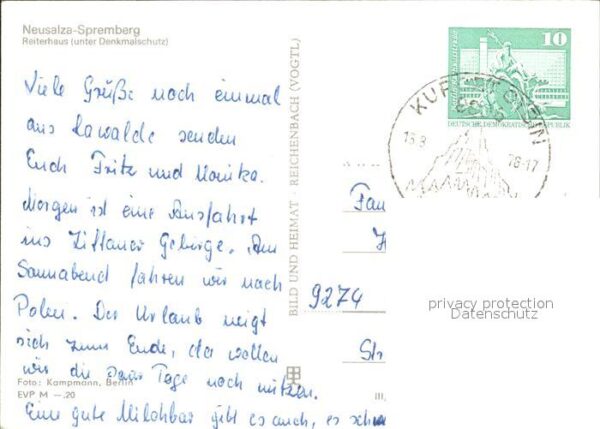 Neusalza-Spremberg
Reiterhaus (unter Denkmalschutz)
Viele Grüße noch einmal
aus Lawalde senden
Euch Fritz und Monika.
Morgen ist eine Ausfahrt
ins Zittauer Gebirge. Am
Sonnabend fahren wir nach
Polen. Der Urlaub neigt
sich zum Ende, da wollen
wir die paar Tage noch nützen.
Foto: Kampmann, Berlin
EVP M –.20
Eine gute Milchbar gibt es auch, es
BILD UND HEIMAT · REICHENBACH (VOGTL)
10
DEUTSCHE DEMOKRATISCHE REPUBLIK
KURORT
78-17
Fam
9274
privacy protection
Datenschutz
Str
III